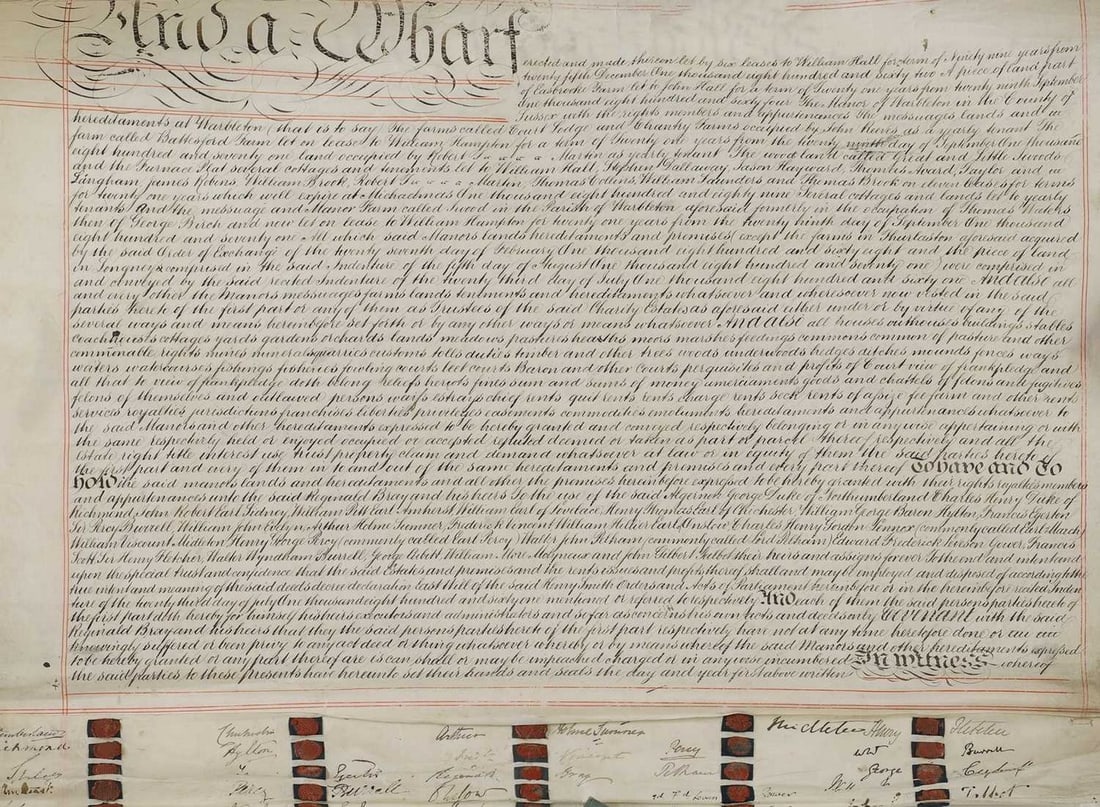 And a Wharf
erected and made thereon let by six leases to William Hall for term of Ninety nine years from
twenty fifth December One thousand eight hundred and sixty two A piece of land part
of Easbrooke Farm let to John Hall for a term of Twenty one years from twenty ninth September
One thousand eight hundred and sixty four The Manor of Warbleton in the County of
Sussex with the rights members and appurtenances The messuages lands and
hereditaments at Warbleton (that is to say) The farms called Court Lodge and Chunky Farms occupied by John Reeves as a yearly tenant The
farm called Battesford Farm let on lease to William Hampton for a term of Twenty one years from the twenty ninth day of September One thousand
eight hundred and seventy one land occupied by Robert Martin as yearly tenant The wood land called Great and Little Swoods
and the Furnace Plat several cottages and tenements let to William Hall, Stephen Dallaway, Jason Hayward, Thomas Award, Taylor and
Langham James Robins, William Brook, Robert Martin, Thomas Collens, William Saunders and Thomas Brook on eleven leases for terms
for twenty one years which will expire at Michaelmas One thousand eight hundred and eighty nine Several Cottages and lands let to yearly
tenants And the messuage and Manor Farm called Swood in the Parish of Warbleton aforesaid formerly in the occupation of Thomas Waters
then of George Birch and now let on lease to William Hampton for twenty one years from the twenty ninth day of September One thousand
eight hundred and seventy one All which said Manors lands hereditaments and premises (except the farms in Thurlaston aforesaid acquired
by the said Order of Exchange of the twenty seventh day of February One thousand eight hundred and sixty eight and the piece of land
in Longney comprised in the said Indenture of the fifth day of August One thousand eight hundred and seventy one) were comprised in
and conveyed by the said recited Indenture of the twenty third day of July One thousand eight hundred and sixty one And also all
and every other the Manors messuages farms lands tenements and hereditaments whatsoever and wheresoever now vested in the said
parties hereto of the first part or any of them as Trustees of the said Charity Estates as aforesaid either under or by virtue of any of the
several ways and means hereinbefore set forth or by any other ways or means whatsoever And also all houses outhouses buildings stables
coachhouses cottages yards gardens orchards lands meadows pastures heaths moors marshes feedings commons common of pasture and other
commonable rights mines minerals quarries customs tolls duties timber and other trees woods underwoods hedges ditches mounds fences ways
waters watercourses fishings fisheries fowling courts leet courts Baron and other Courts perquisites and profits of Court view of frankpledge and
all that to view of frankpledge doth belong reliefs heriots fines sum and sums of money amerciaments goods and chattels of felons and fugitives
felons of themselves and outlawed persons waifs estrays chief rents quit rents rents charge rents seck rents of assize fee farm and other rents
services royalties jurisdictions franchises liberties privileges easements commodities emoluments hereditaments and appurtenances whatsoever to
the said Manors and other hereditaments expressed to be hereby granted and conveyed respectively belonging or in any wise appertaining or with
the same respectively held or enjoyed occupied or accepted reputed deemed or taken as part or parcel thereof respectively and all the
estate right title interest use trust property claim and demand whatsoever at law or in equity of them the said parties hereto of
the first part and every of them in to and out of the same hereditaments and premises and every part thereof To have and To
hold the said manors lands and hereditaments and all other the premises hereinbefore expressed to be hereby granted with their rights royalties members
and appurtenances unto the said Reginald Bray and his heirs To the use of the said Algernon George Duke of Northumberland Charles Henry Duke of
Richmond, John Robert Earl Sidney, William Pitt Earl Amherst William Earl of Lovelace Henry Thomas Earl of Chichester, William George Baron Hylton, Francis Egerton
Sir Percy Burrell, William John Evelyn, Arthur Holme Sumner, Frederick Vincent William Hillier Earl Onslow Charles Henry Gordon Lennox (commonly called Earl March)
William Viscount Midleton Henry George Percy (commonly called Earl Percy) Walter John Pelham (commonly called Lord Pelham) Edward Frederick Leveson Gower, Francis
Scott Sir Henry Fletcher, Walter Wyndham Burrell, George Cubitt William More Molyneux and John Gilbert Talbot their heirs and assigns forever To the end and intent and
upon the special trust and confidence that the said Estates and premises and the rents issues and profits thereof shall and may be employed and disposed of according to the
true intent and meaning of the said deeds decree declaration Last Will of the said Henry Smith Orders and Acts of Parliament hereinbefore or in the hereinbefore recited Inden
ture of the twenty third day of July One thousand eight hundred and sixty one mentioned or referred to respectively And each of them the said persons parties hereto of
the first part doth hereby for himself his heirs executors and administrators and so far as concerns his own acts and deeds only Covenant with the said
Reginald Bray and his heirs that they the said persons parties hereto of the first part respectively have not at any time heretofore done or
knowingly suffered or been privy to any act deed or thing whatsoever whereby or by means whereof the said Manors and other hereditaments expressed
to be hereby granted or any part thereof are is can shall or may be impeached charged or in any wise incumbered In witness whereof
the said parties to these presents have hereunto set their hands and seals the day and year first above written
Chichester Arthur Holme Sumner Midleton Henry Fletcher
Hylton Vincent Percy Burrell
Egerton Reginald Bray Pelham George Cubitt
Percy Burrell Onslow Gower Talbot